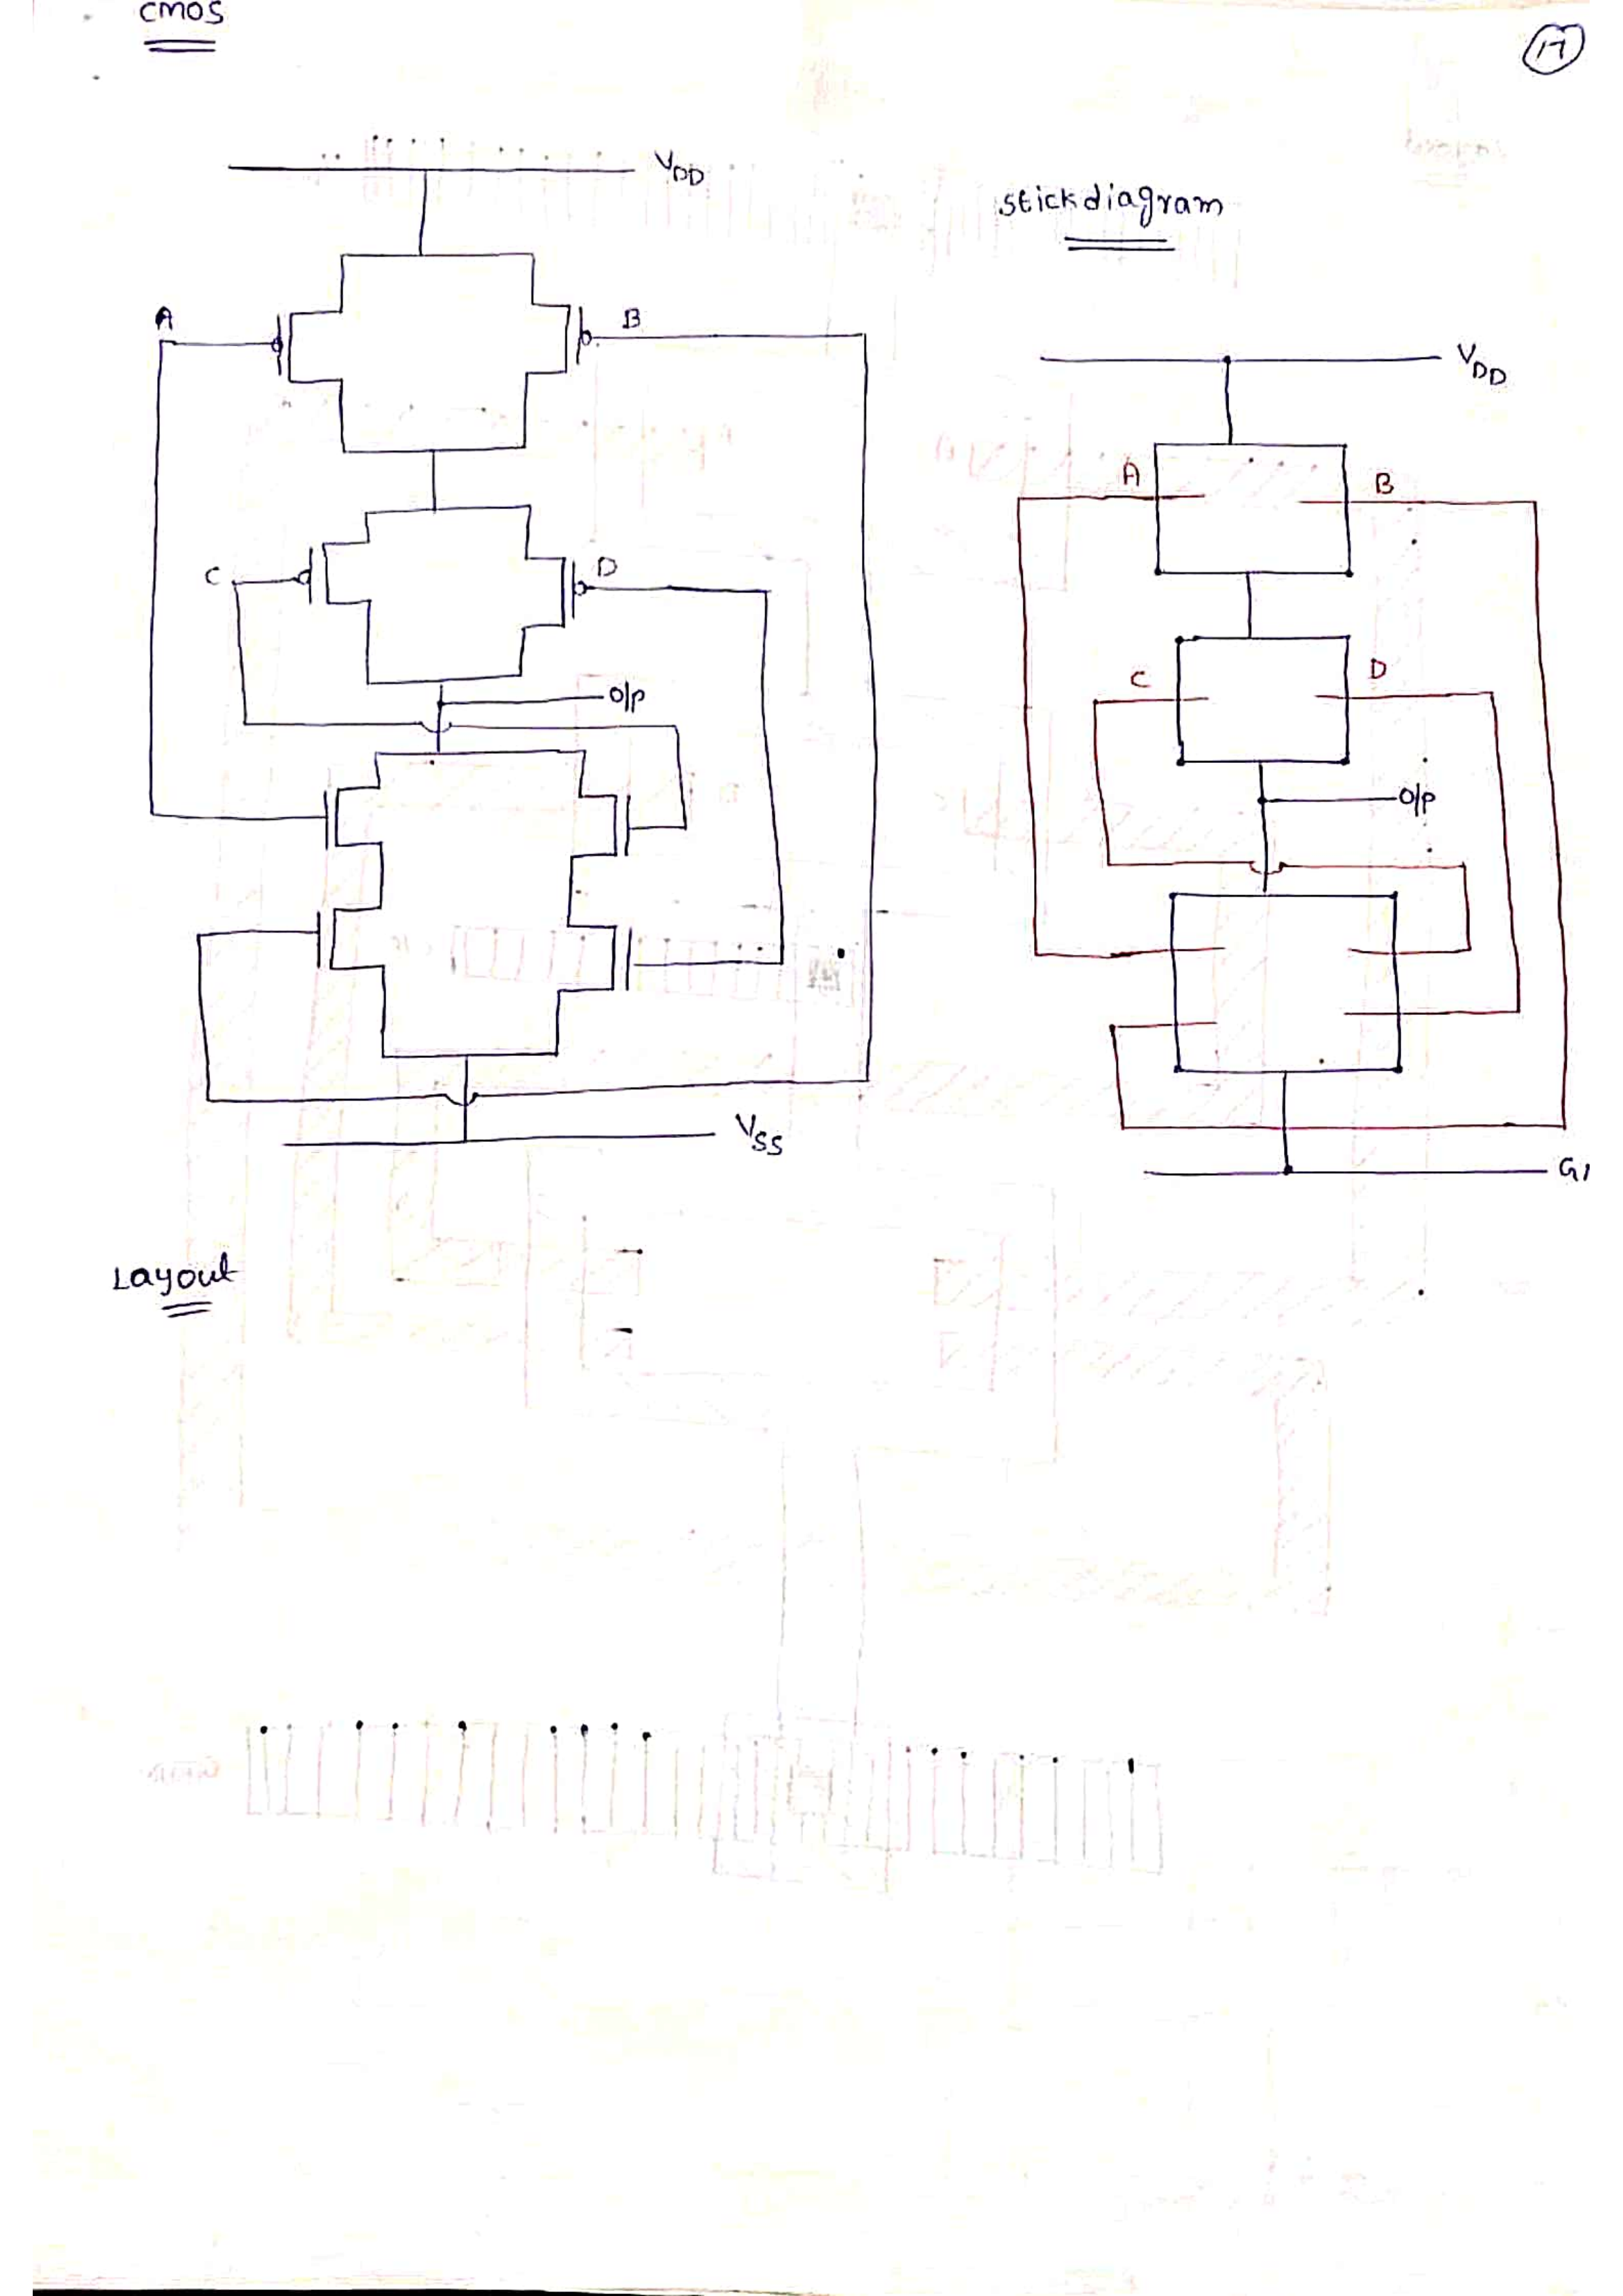 CMOS
17
VDD
A
B
C
D
O/P
VSS
stickdiagram
VDD
A
B
C
D
O/P
Layout